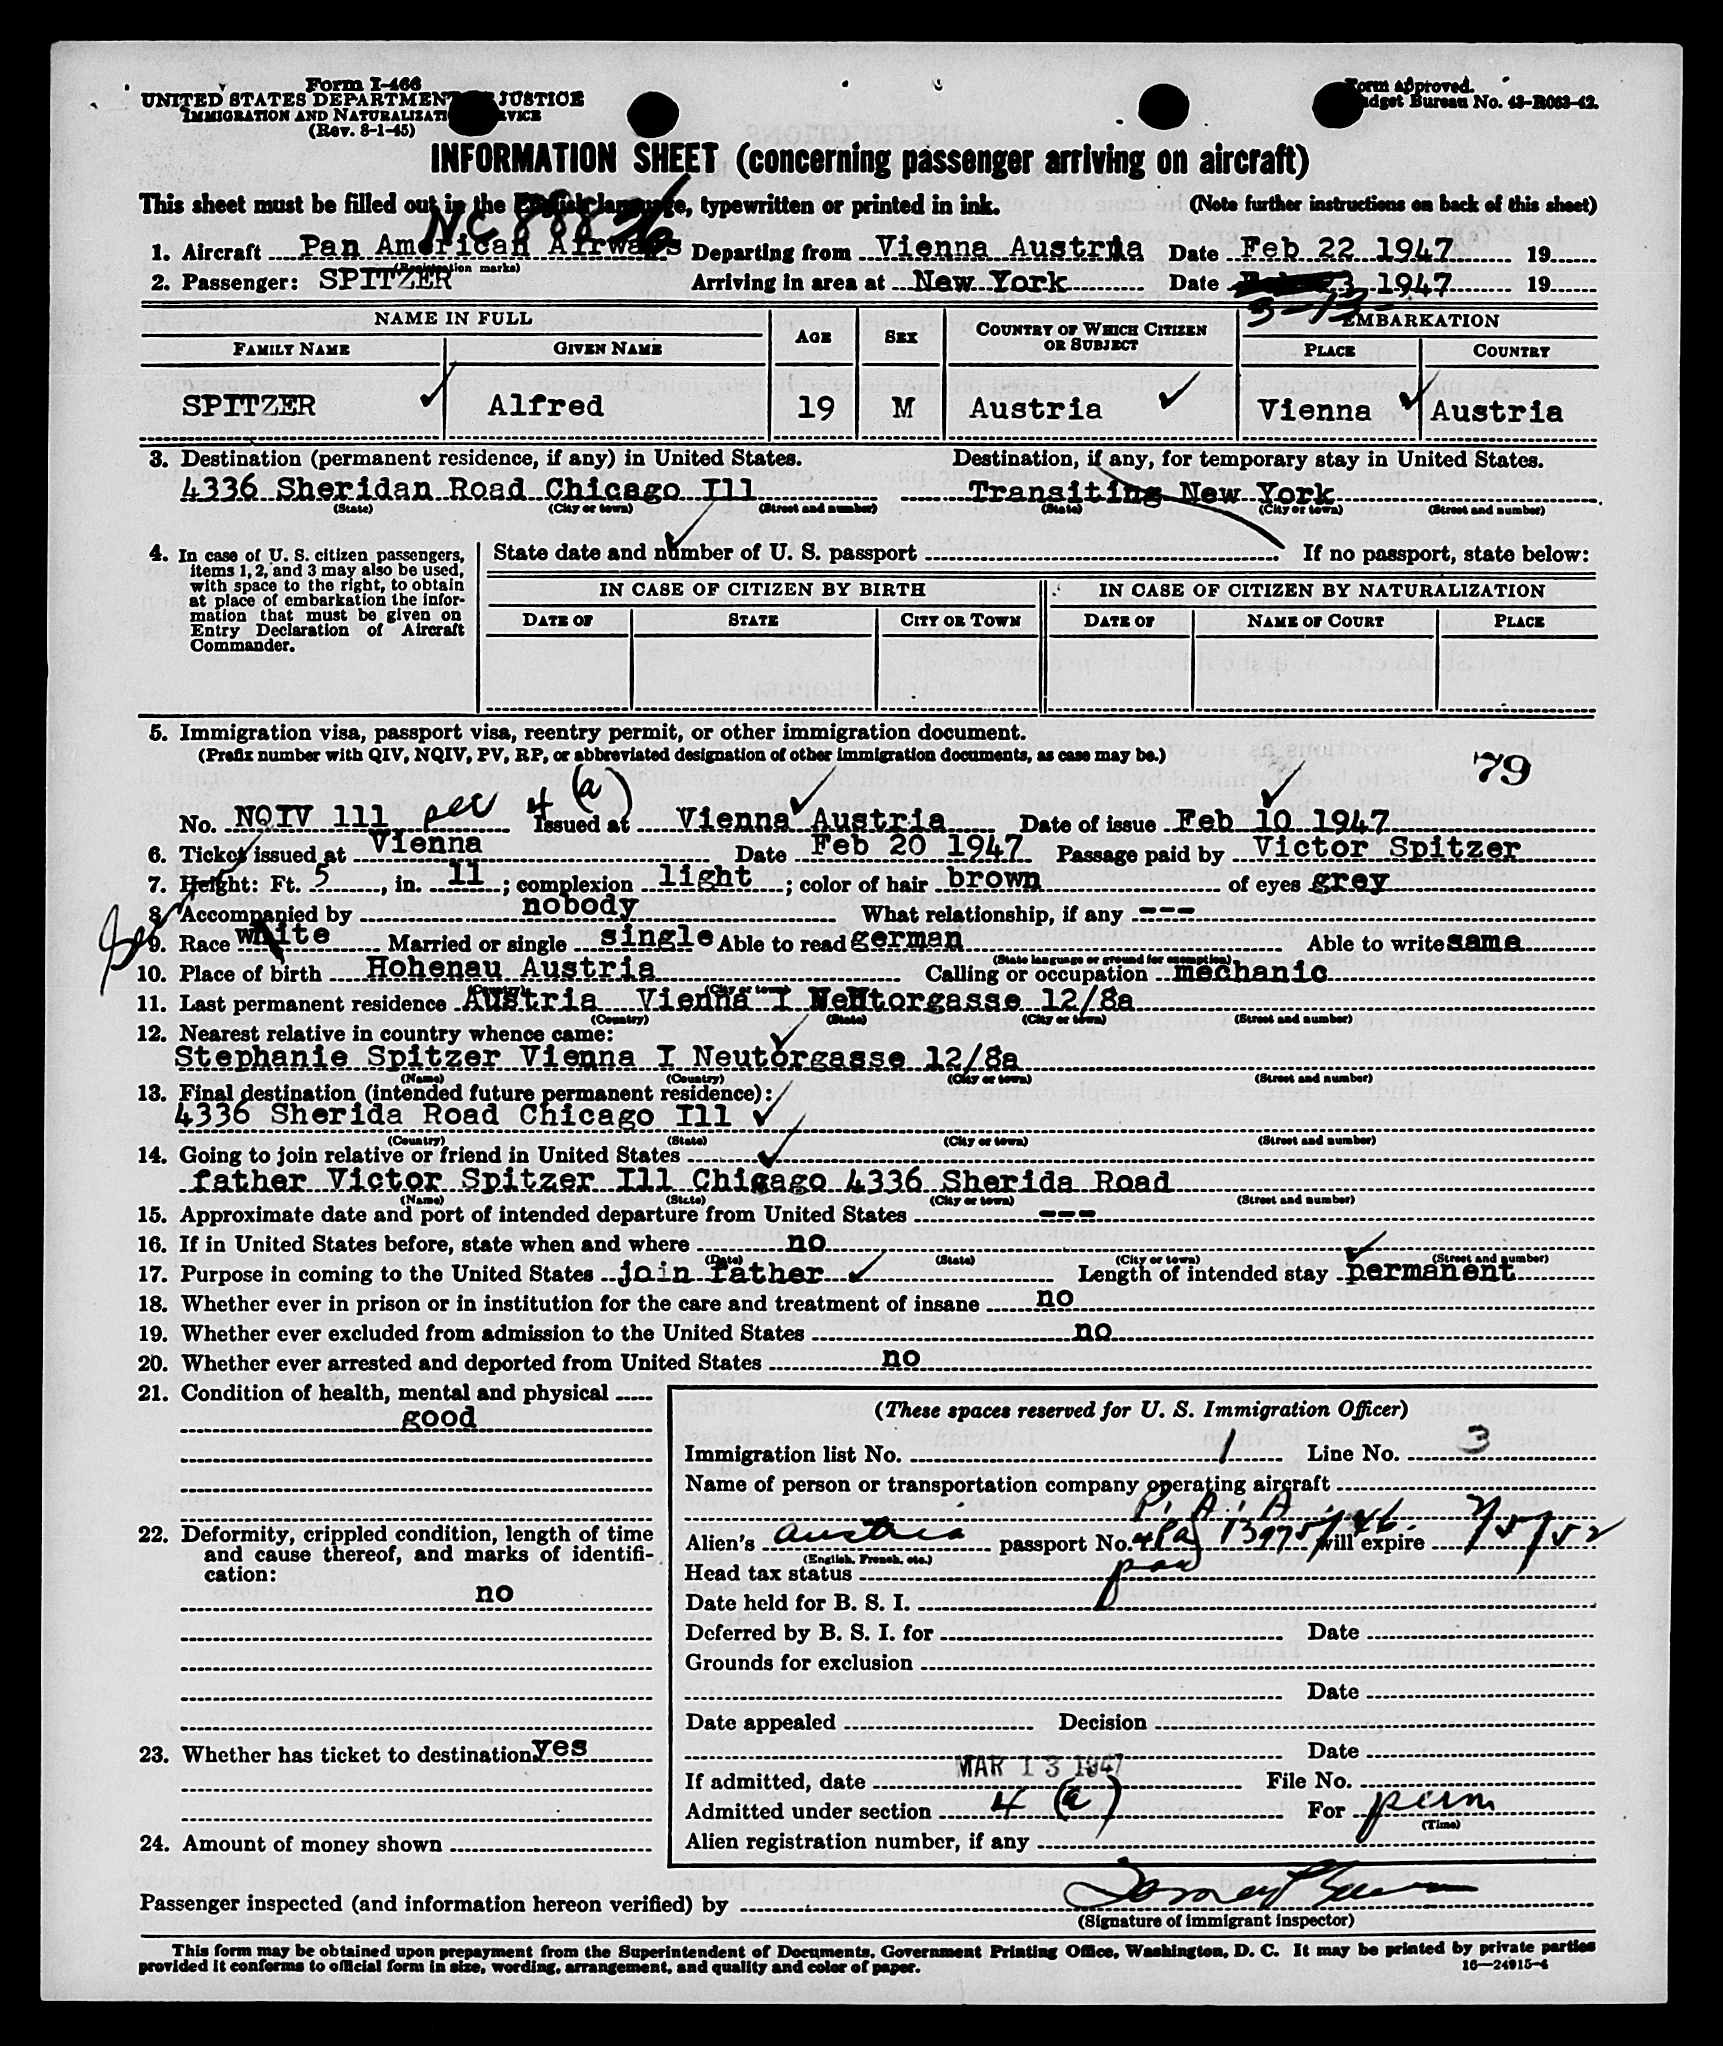 Form I-466
UNITED STATES DEPARTMENT JUSTICE
IMMIGRATION AND NATURALIZATI
(Rev. 8-1-45)
Form approved.
Budget Bureau No. 43-R063-42.
INFORMATION SHEET (concerning passenger arriving on aircraft)
This sheet must be filled out in the English language, typewritten or printed in ink. (Note further instructions on back of this sheet)
NC 888
1. Aircraft Pan American Airways Departing from Vienna Austria Date Feb 22 1947 19
(Registration marks)
2. Passenger: SPITZER Arriving in area at New York Date 3 1947 19
3-13
NAME IN FULL AGE SEX COUNTRY OF WHICH CITIZEN OR SUBJECT EMBARKATION
FAMILY NAME GIVEN NAME PLACE COUNTRY
SPITZER Alfred 19 M Austria Vienna Austria
3. Destination (permanent residence, if any) in United States. Destination, if any, for temporary stay in United States.
4336 Sheridan Road Chicago Ill Transiting New York
(State) (City or town) (Street and number) (State) (City or town) (Street and number)
4. In case of U. S. citizen passengers, items 1, 2, and 3 may also be used, with space to the right, to obtain at place of embarkation the information that must be given on Entry Declaration of Aircraft Commander.
State date and number of U. S. passport If no passport, state below:
IN CASE OF CITIZEN BY BIRTH IN CASE OF CITIZEN BY NATURALIZATION
DATE OF STATE CITY OR TOWN DATE OF NAME OF COURT PLACE
5. Immigration visa, passport visa, reentry permit, or other immigration document.
(Prefix number with QIV, NQIV, PV, RP, or abbreviated designation of other immigration documents, as case may be.)
79
No. NQIV 111 sec 4 (a) Issued at Vienna Austria Date of issue Feb 10 1947
6. Ticket issued at Vienna Date Feb 20 1947 Passage paid by Victor Spitzer
7. Height: Ft. 5, in. 11; complexion light; color of hair brown of eyes grey
8. Accompanied by nobody What relationship, if any ---
9. Race white Married or single single Able to read german Able to write same
(State language or ground for exemption)
10. Place of birth Hohenau Austria Calling or occupation mechanic
(Country) (City or town)
11. Last permanent residence Austria Vienna I Neutorgasse 12/8a
(Country) (State) (City or town) (Street and number)
12. Nearest relative in country whence came:
Stephanie Spitzer Vienna I Neutorgasse 12/8a
(Name) (Country) (City or town) (Street and number)
13. Final destination (intended future permanent residence):
4336 Sherida Road Chicago Ill
(Country) (State) (City or town) (Street and number)
14. Going to join relative or friend in United States
father Victor Spitzer Ill Chicago 4336 Sherida Road
(Name) (State) (City or town) (Street and number)
15. Approximate date and port of intended departure from United States ---
16. If in United States before, state when and where no
(Date) (State) (City or town) (Street and number)
17. Purpose in coming to the United States join father Length of intended stay permanent
18. Whether ever in prison or in institution for the care and treatment of insane no
19. Whether ever excluded from admission to the United States no
20. Whether ever arrested and deported from United States no
21. Condition of health, mental and physical
good
22. Deformity, crippled condition, length of time and cause thereof, and marks of identification:
no
23. Whether has ticket to destination yes
24. Amount of money shown
(These spaces reserved for U. S. Immigration Officer)
Immigration list No. 1 Line No. 3
Name of person or transportation company operating aircraft
P. A. A.
Alien's Austria passport No. will expire
(English, French, etc.)
Head tax status
Date held for B. S. I.
Deferred by B. S. I. for Date
Grounds for exclusion
Date
Date appealed Decision
Date
If admitted, date MAR 13 1947 File No.
Admitted under section 4 (a) For perm
(Time)
Alien registration number, if any
Passenger inspected (and information hereon verified) by
(Signature of immigrant inspector)
This form may be obtained upon prepayment from the Superintendent of Documents, Government Printing Office, Washington, D. C. It may be printed by private parties
provided it conforms to official form in size, wording, arrangement, and quality and color of paper. 16—24915-4